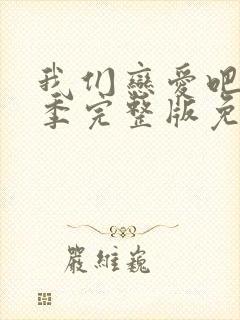 我们恋爱吧
季完整版免
严维巍